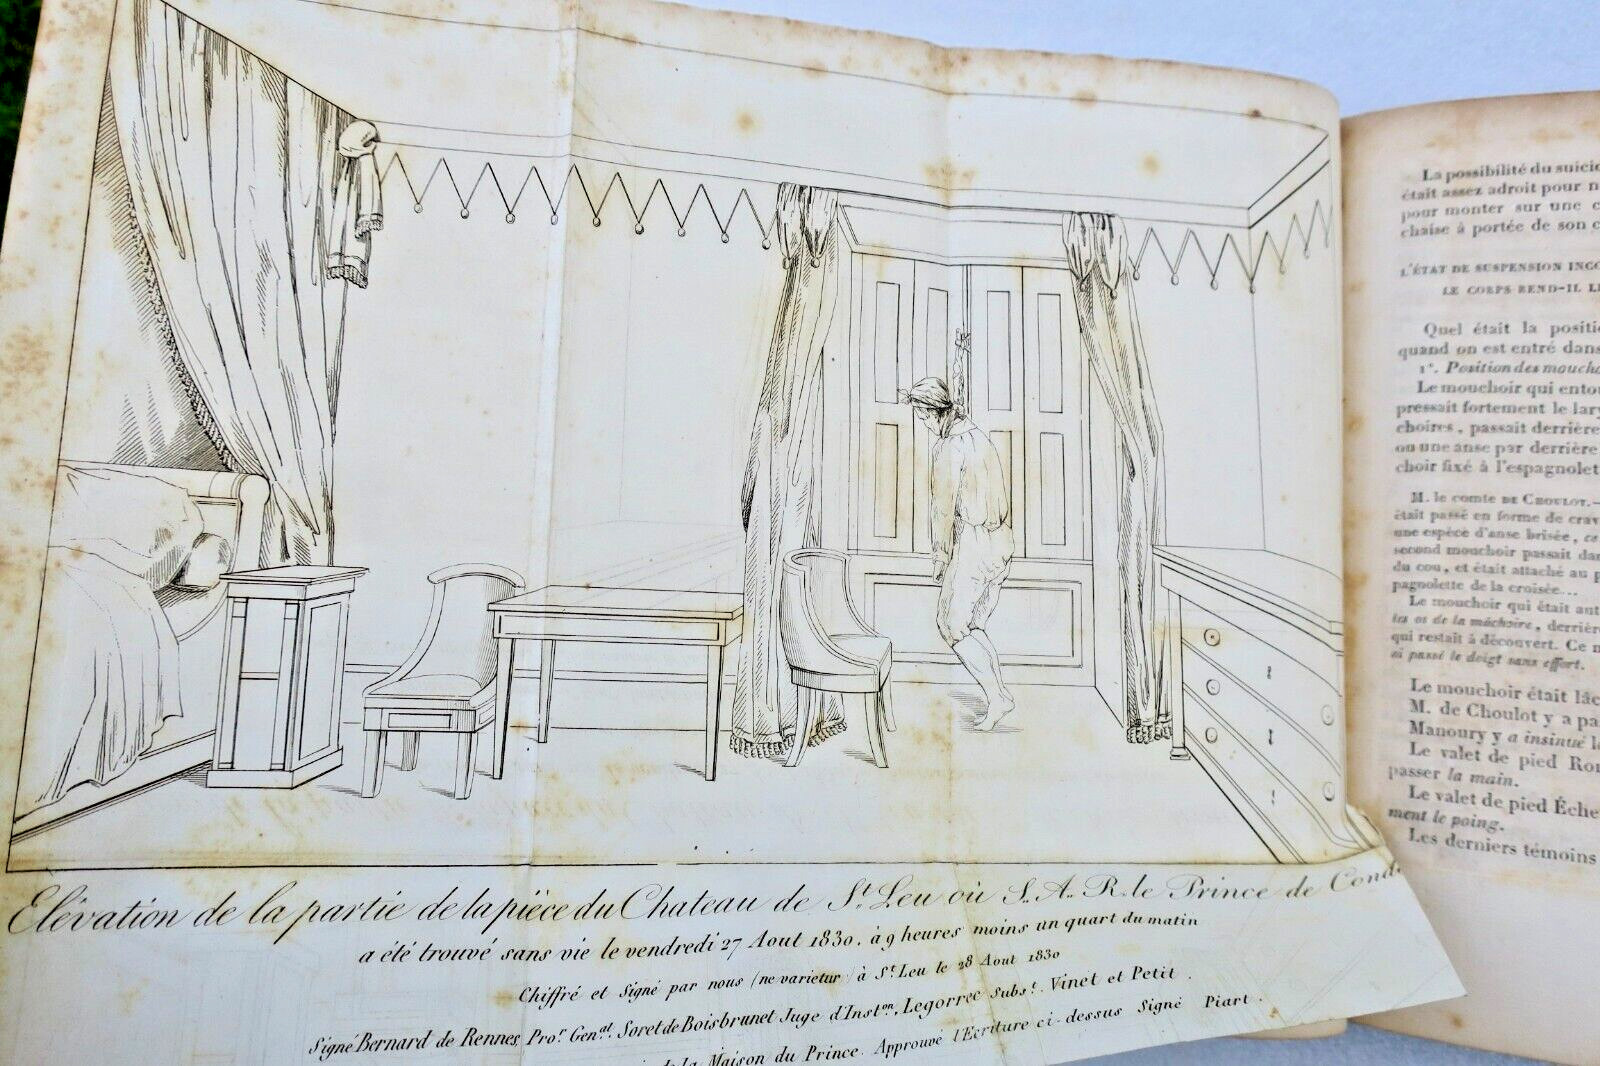 Elévation de la partie de la pièce du Chateau de St. Leu où S. A. R. le Prince de Cond
a été trouvé sans vie le vendredi 27 Aout 1830. à 9 heures moins un quart du matin
Chiffré et Signé par nous (ne varietur) à St. Leu le 28 Aout 1830
Signé Bernard de Rennes, Pror. Genal. Soret de Boisbrunet Juge d'Inston., Legorrec Subst. Vinet et Petit.
de la Maison du Prince. Approuvé l'Ecriture ci-dessus Signé Piart.
La possibilité du suicid
était assez adroit pour n
pour monter sur une c
chaise à portée de son c
L'ÉTAT DE SUSPENSION INCO
LE CORPS REND-IL L
Quel était la positi
quand on est entré dans
1°. Position des moucho
Le mouchoir qui entou
pressait fortement le lary
choires, passait derrière
ou une anse par derrière
choir fixé à l'espagnolet
M. le comte DE CHOULOT.—
était passé en forme de crav
une espèce d'anse brisée, ce
second mouchoir passait dan
du cou, et était attaché au p
pagnolette de la croisée...
Le mouchoir qui était aut
les os de la mâchoire, derrièr
qui restait à découvert. Ce m
ai passé le doigt sans effort.
Le mouchoir était lâc
M. de Choulot y a pa
Manoury y a insinué l
Le valet de pied Rom
passer la main.
Le valet de pied Éche
ment le poing.
Les derniers témoins